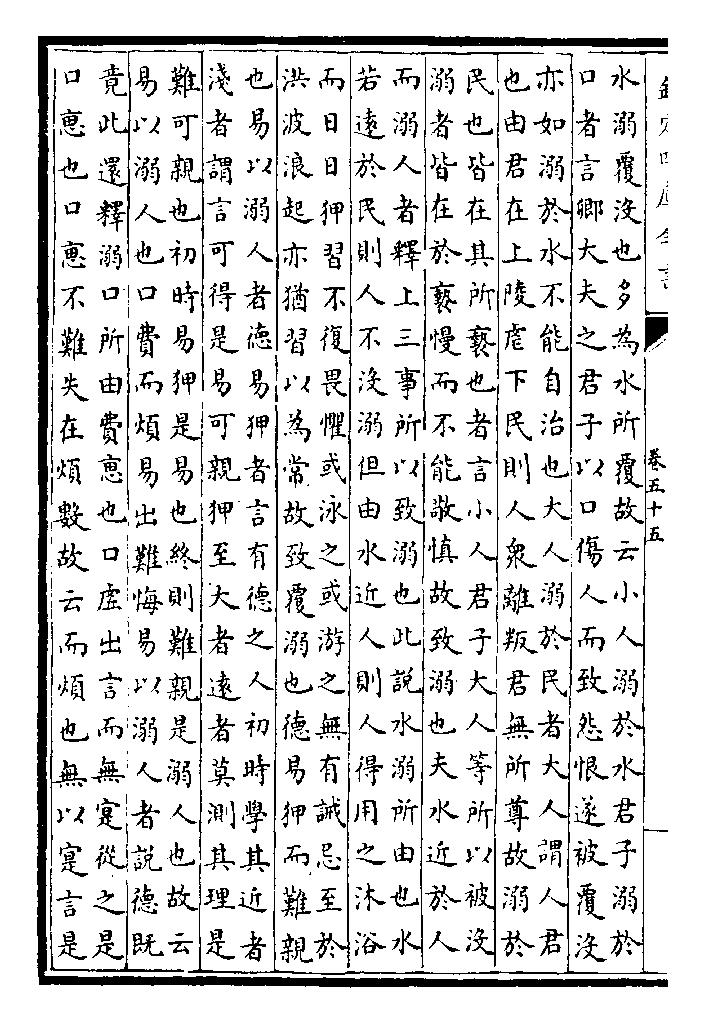 欽定四庫全書
卷五十五
水溺覆没也多為水所覆故云小人溺於水君子溺於
口者言卿大夫之君子以口傷人而致怨恨遂被覆没
亦如溺於水不能自治也大人溺於民者大人謂人君
也由君在上陵虐下民則人衆離叛君無所尊故溺於
民也皆在其所䙝也者言小人君子大人等所以被没
溺者皆在於䙝慢而不能敬慎故致溺也夫水近於人
而溺人者釋上三事所以致溺也此說水溺所由也水
若遠於民則人不没溺但由水近人則人得用之沐浴
而日日狎習不復畏懼或泳之或游之無有誡忌至於
洪波浪起亦猶習以為常故致覆溺也德易狎而難親
也易以溺人者德易狎者言有德之人初時學其近者
淺者謂言可得是易可親狎至大者遠者莫測其理是
難可親也初時易狎是易也終則難親是溺人也故云
易以溺人也口費而煩易出難悔易以溺人者說德既
竟此還釋溺口所由費恵也口虛出言而無寔從之是
口恵也口恵不難失在煩數故云而煩也無以寔言是